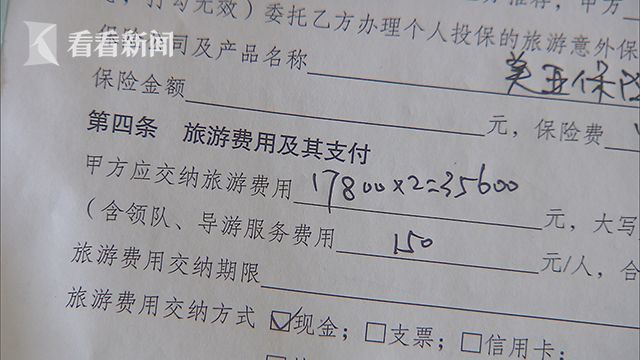 看看新闻
打勾无效）委托乙方办理个人投保的旅游意外保
司及产品名称 美亚保险
保险金额 元，保险费
第四条 旅游费用及其支付
甲方应交纳旅游费用 17800×2=35600 元，大写
（含领队、导游服务费用 150 元/人，合
旅游费用交纳期限
旅游费用交纳方式 ☑现金；□支票；□信用卡；